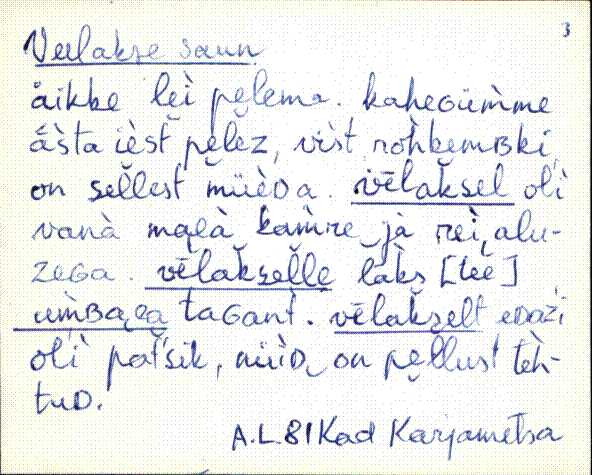 3
Veelakse saun
äikke lèi pe̮lema. kaheGüm̀me
ǟsta iest pe̮lez, vist rohkemBki,
on sellest müèDa. vēlaksel oli
vanà majà kam̀re jà rei alu-
zeGa. vēlakselle läks [tee]
um̀Baja taGant. vēlakselt eDazi
oli pat́sik, nüìD on pe̮llust teh-
tuD.
A.L.81 Kad Karjametsa